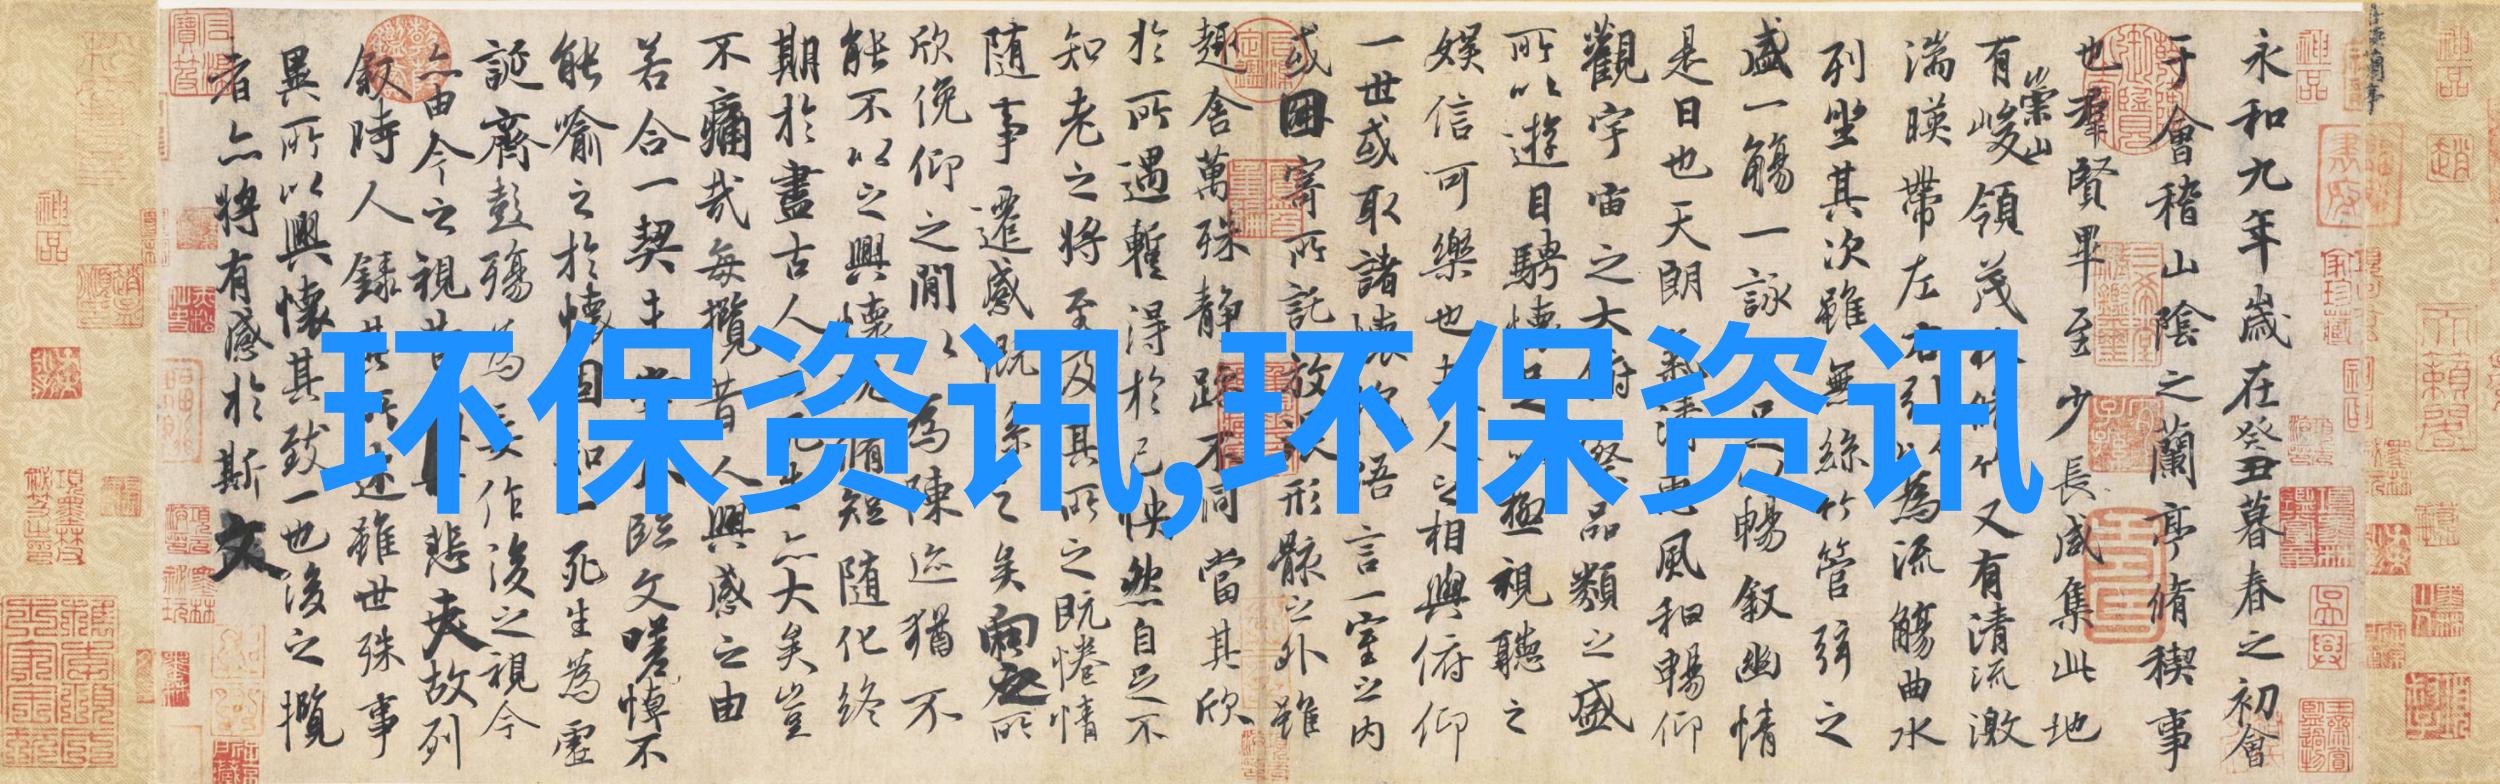 环保资讯,环保资讯
永和九年歲在癸丑暮春之初會
于會稽山陰之蘭亭脩稧事
也羣賢畢至少長咸集此地
有崇山峻領茂林脩竹又有清流激
湍暎帶左右引以為流觴曲水
列坐其次雖無絲竹管弦之
盛一觴一詠足以暢敘幽情
是日也天朗氣清惠風和暢仰
觀宇宙之大俯察品類之盛
所以遊目騁懷足以極視聽之
娛信可樂也夫人之相與俯仰
一世或取諸懷悟言一室之內
或因寄所託放浪形骸之外雖
趣舍萬殊静躁不同當其欣
於所遇蹔得於己怏然自足不
知老之將至及其所之既惓情
隨事遷感慨係之矣向之所
欣俛仰之閒以為陳迹猶不
能不以之興懷況脩短隨化終
期於盡古人云死生亦大矣豈
不痛哉每攬昔人興感之由
若合一契未嘗不臨文嗟悼不
能喻之於懷固知一死生為虛
誕齊彭殤為妄作後之視今
亦由今之視昔悲夫故列
敘時人錄其所述雖世殊事
異所以興懷其致一也後之攬
者亦將有感於斯文